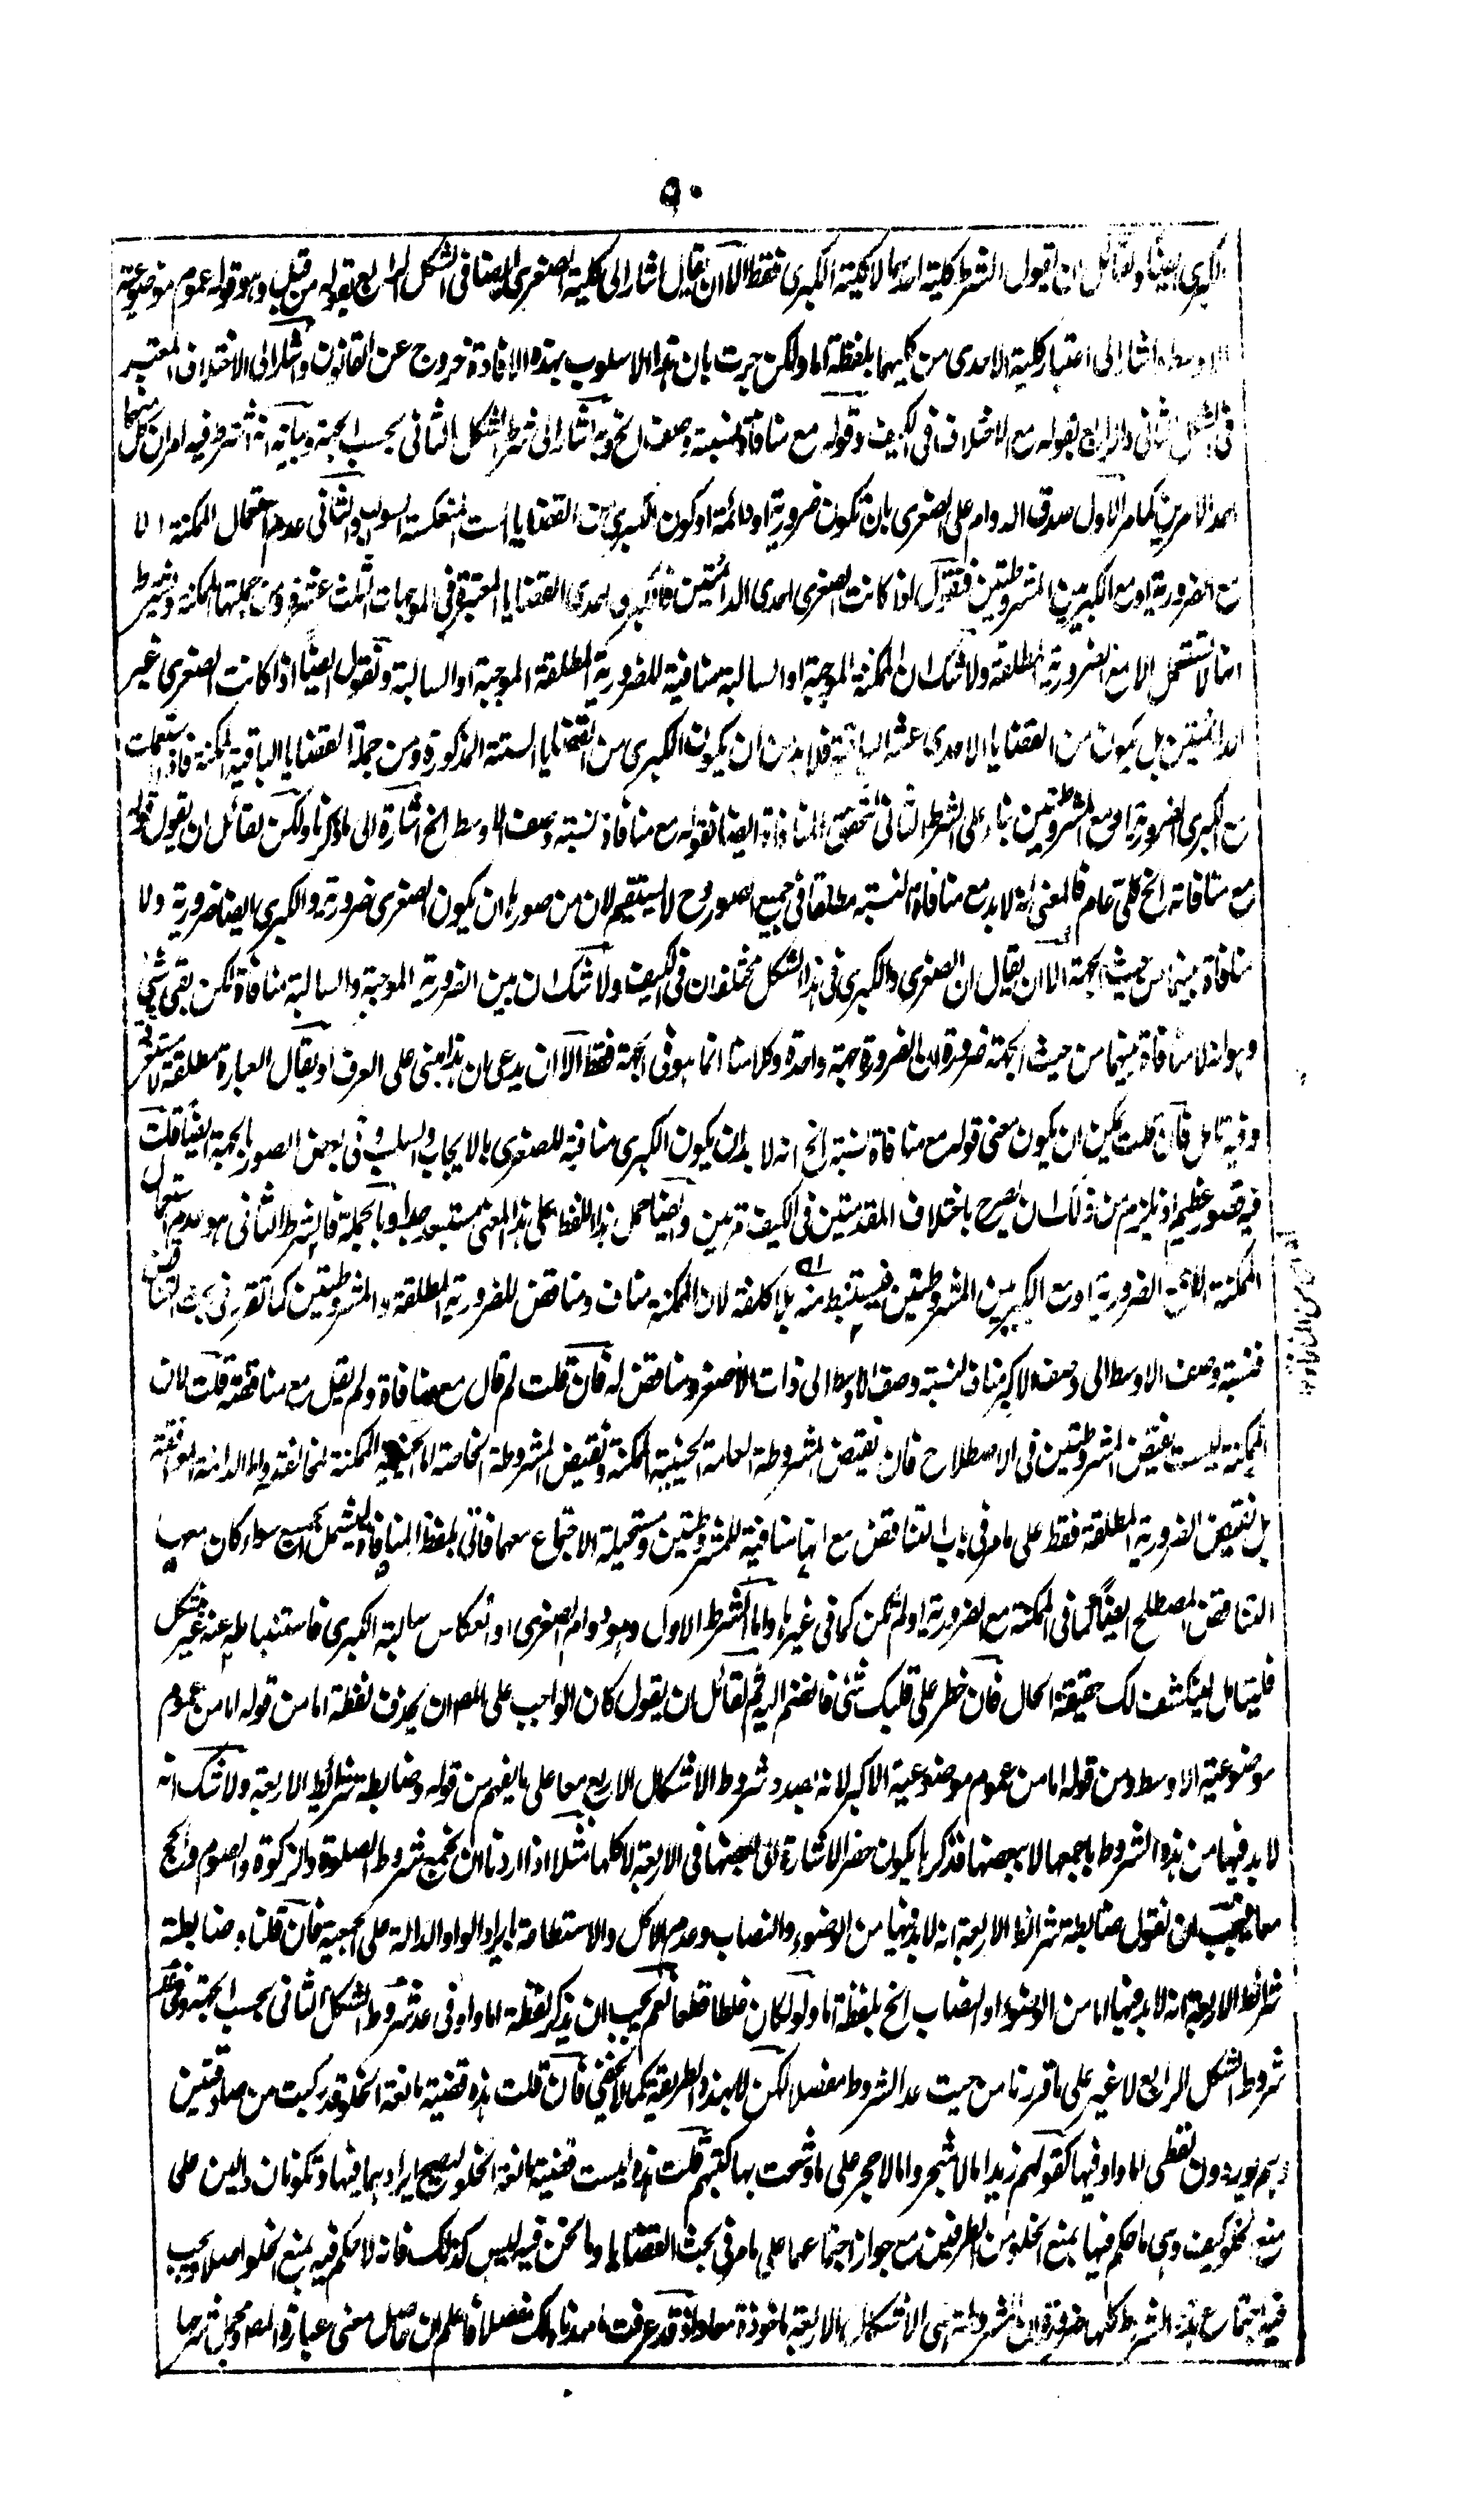 ٩٠
الكبرى ايضا ولقائل ان يقول الشرط كلية احدهما لا كلية الكبرى فقط الا ان يقال اشار الى كلية الصغرى ايضا فى الشكل الرابع بقوله من قبل وهو قوله عموم موضوعية
الاوسط واشار الى اعتبار كلية الاحدى من كليهما بلفظة اما ولكن حررت بان هذا الاسلوب بهذه الافادة خروج عن القانون واشار الى الاختلاف المعتبر
فى الشكل الثانى والرابع بقوله مع الاختلاف فى الكيف وقوله مع منافاة نسبة وصف الخ وبه اشار الى شرط الشكل الثانى بحسب الجهة وبيانه انه اشترط فيه امران كل منهما
احد الامرين كما مر الاول صدق الدوام على الصغرى بان تكون ضرورية او دائمة او كون الكبرى من القضايا الست المنعكسة السوالب والثانى عدم استعمال الممكنة الا
مع الضرورية او مع الكبريين المشروطتين فنقول اذا كانت الصغرى احدى الدائمتين فالكبرى احدى القضايا المعتبرة فى الموجهات الثلث عشرة ومن جملتها الممكنة وشرط
انها لا تستعمل الا مع الضرورية المطلقة ولا شك ان الممكنة الموجبة او السالبة منافية للضرورية المطلقة الموجبة او السالبة ونقول ايضا اذا كانت الصغرى غير
الدائمتين بل تكون من القضايا الاحدى عشر الباقية فلا بد من ان يكون الكبرى من القضايا الستة المذكورة ومن جملة القضايا الباقية الممكنة فاذا استعملت
مع الكبرى الضرورية او مع المشروطتين بناء على الشرط الثانى تتحقق المنافاة ايضا فقوله مع منافاة نسبة وصف الاوسط الخ اشارة الى ما ذكرنا ولكن لقائل ان يقول قوله
مع منافاته الخ كلى عام فالمعنى انه لا بد مع منافاة النسبة مطلقا فى جميع الصور وح لا يستقيم لان من صورها ان يكون الصغرى ضرورية والكبرى ايضا ضرورية ولا
منافاة بينهما من حيث الجهة الا ان يقال ان الصغرى والكبرى فى هذا الشكل مختلفان فى الكيف ولا شك ان بين الضرورية الموجبة والسالبة منافاة لكن بقى شئ
وهو انه لا منافاة بينهما من حيث الجهة ضرورة ان الضرورة جهة واحدة وكلامنا انما هو فى الجهة فقط الا ان يدعى ان هذا مبنى على العرف او يقال العبارة مطلقة
وفيه تامل فان قلت يمكن ان يكون معنى قوله مع منافاة نسبة الخ انه لا بد ان يكون الكبرى منافية للصغرى بالايجاب والسلب وفى بعض الصور بالجهة ايضا قلت
فيه قصور عظيم اذ يلزم من ذلك ان يصرح باختلاف المقدمتين فى الكيف مرتين وايضا حمل هذا اللفظ على هذا المعنى مستبعد جدا وبالجملة فالشرط الثانى هو عدم استعمال
الممكنة الا مع الضرورية او مع الكبريين المشروطتين فيستنبط منه بلا كلفة لان الممكنة مناف ومناقض للضرورية المطلقة والمشروطتين كما تقرر فى بحث التناقض
فنسبة وصف الاوسط الى وصف الاكبر مناف لنسبة وصف الاوسط الى ذات الاصغر ومناقض له فان قلت لم قال مع منافاة ولم يقل مع مناقضة قلت لان
الممكنة ليست نقيض المشروطتين فى الاصطلاح فان نقيض المشروطة العامة الحينية الممكنة ونقيض المشروطة الخاصة اما الحينية الممكنة المخالفة واما الدائمة الموافقة
بل نقيض الضرورية المطلقة فقط على ما مر فى باب التناقض مع انها منافية للمشروطتين ومستحيلة الاجتماع معهما فاتى بلفظ المنافاة ليشمل الجميع سواء كان معها
التناقض المصطلح ايضا كما فى الممكنة مع الضرورية او لم تكن كما فى غيرها واما الشرط الاول وهو دوام الصغرى او انعكاس سالبة الكبرى فاستنباطه عنه غير مشكل
فليتامل لينكشف لك حقيقة الحال فان خطر على قلبك شئ فانضم اليه ثم لقائل ان يقول كان الواجب على المصـ ان يحذف لفظة اما من قوله اما من عموم
موضوعية الاوسط ومن قوله اما من عموم موضوعية الاكبر لانه بصدد شروط الاشكال الاربع معا على ما يفهم من قوله وضابطة شرائط الاربعة ولا شك انه
لا بد فيها من هذه الشروط باجمعها لا ببعضها فذكرها يكون حضرا لاشارة الى بعضها فى الاربعة لا كلها مثلا اذا اردنا ان نجمع شروط الصلوة والزكوة والصوم والحج
معا فيجب ان نقول ضابطة شرائط الاربعة انه لا بد فيها من الوضوء والنصاب وعدم الاكل والاستطاعة بايراد الواو الدالة على الجمعية فان قلنا وضابطة
شرائط الاربعة انه لا بد فيها اما من الوضوء او النصاب الخ بلفظة اما ولو لكان غلطا قطعا نعم يجب ان يذكر لفظة اما واو فى عد شروط الشكل الثانى بحسب الجهة وفى
شروط الشكل الرابع لا غير على ما قررنا من حيث عد الشروط مفصلا لكن لا بهذه الطريقة كما لا يخفى فان قلت هذه قضية مانعة الخلو قد ركبت من صادقتين
وهم يوردون لفظى اما واو فيها كقولهم زيد اما لا شجر واما لا حجر على ما وشحت بها كتبهم قلت هذه ليست قضية مانعة الخلو ليصح ايرادهما فيها وتكونان دالين على
منع الخلو كيف وهى ما حكم فيها بمنع الخلو من الطرفين مع جواز اجتماعهما على ما مر فى بحث القضايا وما نحن فيه ليس كذلك فانه لا حكم فيه بمنع الخلو اصلا ويجب
فيه اجتماع هذه الشروط كلها ضرورة ان المشروط هى الاشكال الاربعة ماخوذة معا واذ قد عرفت ما مهدنا لك مفصلا فاعلم ان حاصل معنى عبارة المصـ ومجمل شرحها